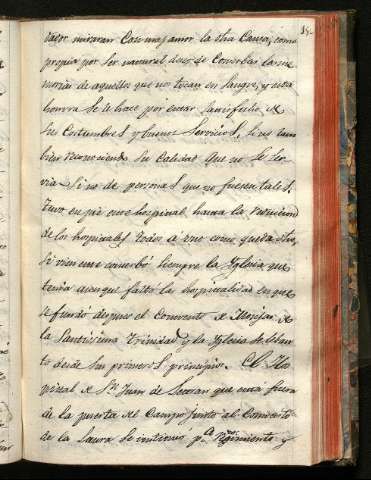 valor miraran Con mas amor la dha Causa, como
propia por ser natural deseo de Conserbar la me
moria de aquellos que nos tocan en Sangre, y esta
honrra Se le hace por estar Satisfecho de
Su Costumbres y buenos Servicios, si es tam
bien reconociendo Su Calidad que no Se Ser
via Si no de personas que no fuesen tales.
Tuvo en pie este hospital hasta la reunion
de los hospitales todos a uno como queda dho,
si vien este conserbó siempre la Yglesia que
tenia aunque faltó la hospitalidad en que
se fundó despues el Convento de Monjas de
la Santissima Trinidad y la Yglesia se llebar
desde su primeros principios. El Hos
pital de Sn Juan de Letran que esta fuera
de la puerta del Campo junto al Convento
de la Laura Se instituio pa regimiento y